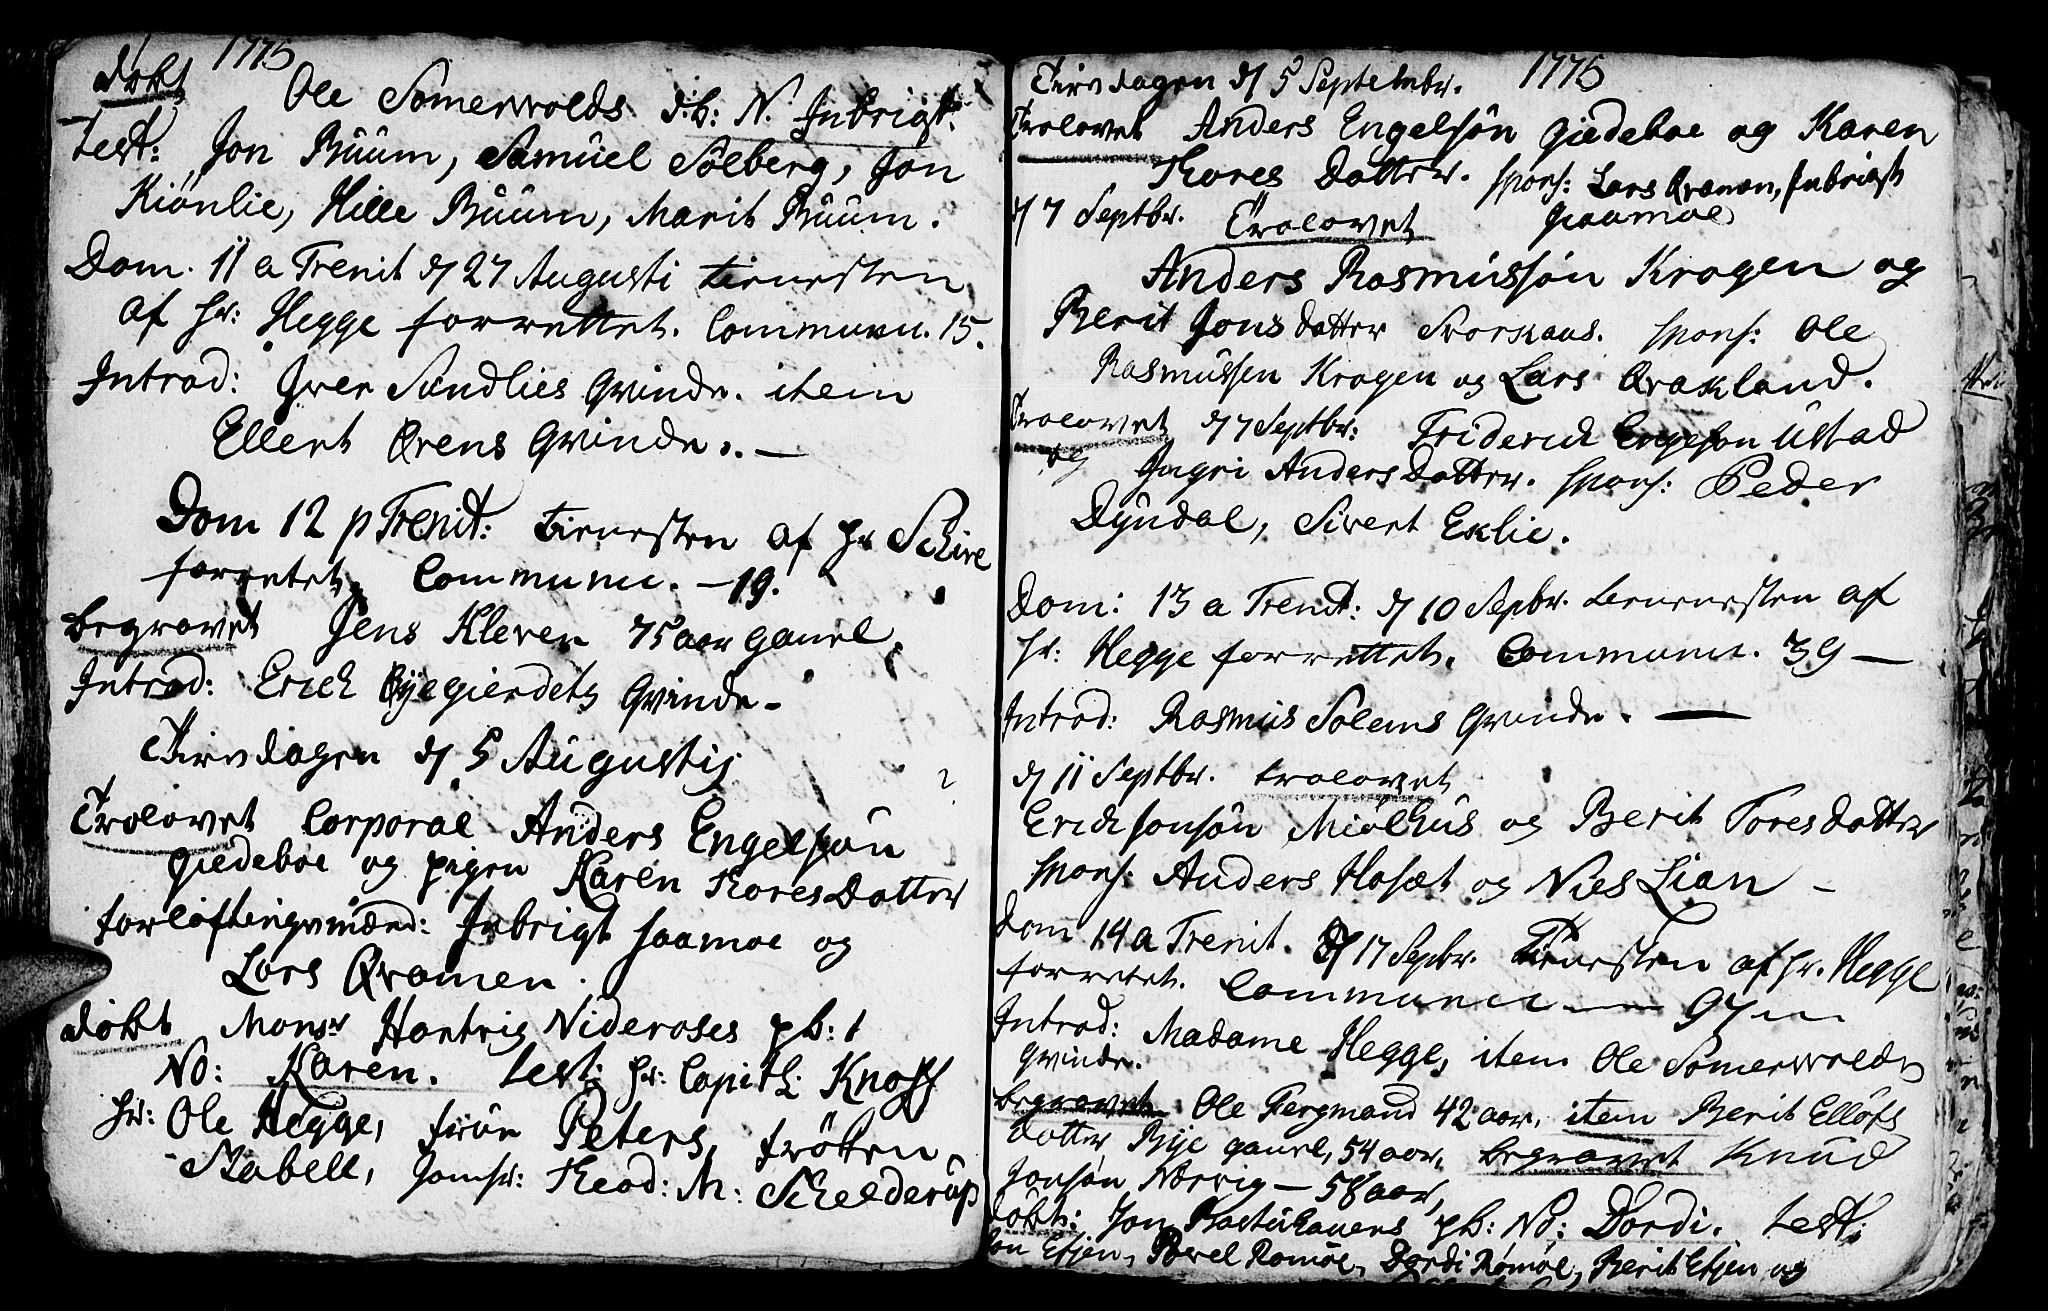 1775
døbt
Ole Somerwolds d:b: N. Jnbrigt.
test: Jon Buum, Samuel Solberg, Jon
Kiønlie, Hille Buum, Marit Buum.
Dom. 11 a Trenit d 27 Augusti tienesten
af hr: Hegge forrettet. Commun. 15.
Introd: Iver Sandlies Qvinde. item
Ellert Ørens Qvinde. —
Dom 12 p Trenit: tienesten af hr Schive
forretet. Communic. — 19.
begravet Jens Kleven 75 aar gamel.
Introd: Erich Byegierdets Qvinde —
Tirsdagen d 5 Augustij
Trolovet Corporal Anders Engelsøn
Giedeboe og pigen Karen ThoresDatter
forløftingsmænd: Jnbrigt Haamoe og
Lars Qvamen.
døbt Monsr Hartvig Nideroses pb: 1
No: Karen. test: hr: Capith: Knoff
hr: Ole Hegge, frue Peters, frøken
Stabell, Jomfr: Thead: M: Schelderup
Tirsdagen d 5 Septembr. 1775
Trolovet Anders Engelsøn Giedeboe og Karen
Thores Datter. spons: Lars Qvamen, Jnbrigt
Haamoe
d 7 Septbr. Trolovet
Anders Rasmussøn Kragen og
Berit Jonsdatter Storkaas. spons: Ole
Rasmussen Kragen og Lars Qvakland.
Trolovet d 7 Septbr: Friderich Engelsøn Ustad
og Ingri AndersDatter. spons: Peder
Dyndal, Sivert Eklie.
Dom: 13 a Trenit: d 10 Sepbr. tienesten af
hr: Hegge forrettet. Communic. 39 —
Introd: Rasmus Solems Qvinde. —
d 11 Septbr. trolovet
Erich Jonsøn Miølhus og Berit ToresDatter
spons: Anders Hosæt og Niels Lian —
Dom 14 a Trenit. d 17 Sepbr. Tienesten af hr. Hegge
forretet. Communic — 97
Introd: Madame Hegge, item Ole Somerwolds
Qvinde.
begravet Ole Bergmand 42 aar. item Berit Ellofs
datter Bye gamel, 54 aar, begravet Knud
Jonsøn Norvig — 58 aar,
døbt: Jon Rastuhauens pb: No: Dordi. test:
Jon Efjen, Povel Romøe, Dordi Rømøe, Berit Efjen og